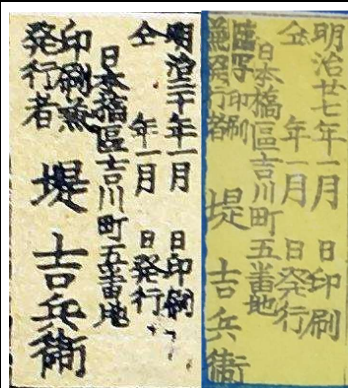 明治廿七年一月 日印刷
仝 年一月 日発行
日本橋區吉川町五番地
臨写印刷
兼発行者 堤吉兵衛
明治三十年一月 日印刷
仝 年一月 日発行
日本橋區吉川町五番地
印刷兼
発行者 堤吉兵衛